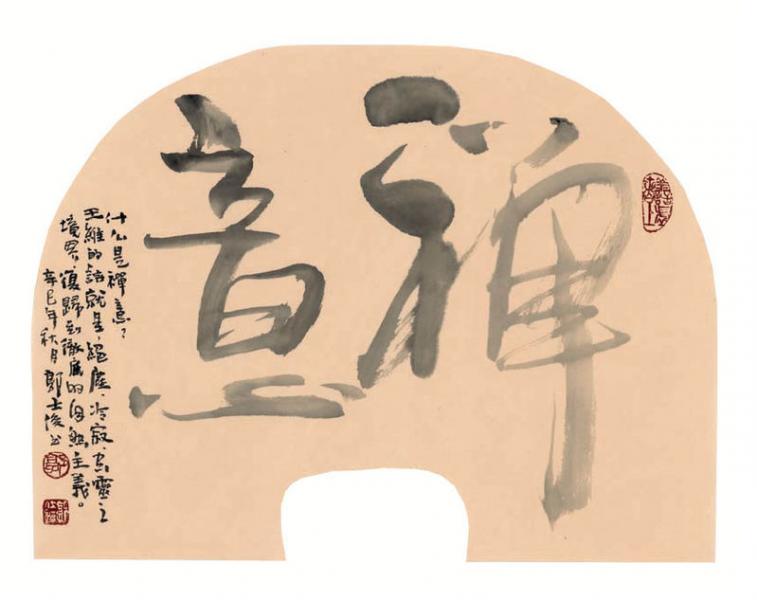 禪意
什么是禪意？
王維的詩就是絕塵、冷寂、空靈之
境界，復歸到徹底的自然主義。
辛巳年秋月鄭士俊书